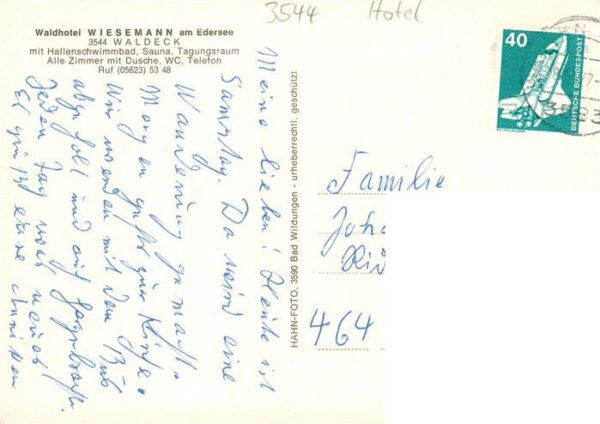 3544 Hotel
Waldhotel WIESEMANN am Edersee
3544 WALDECK
mit Hallenschwimmbad, Sauna, Tagungsraum
Alle Zimmer mit Dusche, WC, Telefon
Ruf (05623) 53 48
Meine lieben! Heute ist
Samstag. Da wird eine
Wanderung gemacht.
Morgen geht's zur Kirche.
Wir werden mit dem Bus
abgeholt und auch
Jeden Tag was neues!
Es grüßt
HAHN-FOTO, 3590 Bad Wildungen - urheberrechtl. geschützt
40
DEUTSCHE BUNDESPOST
Familie
464